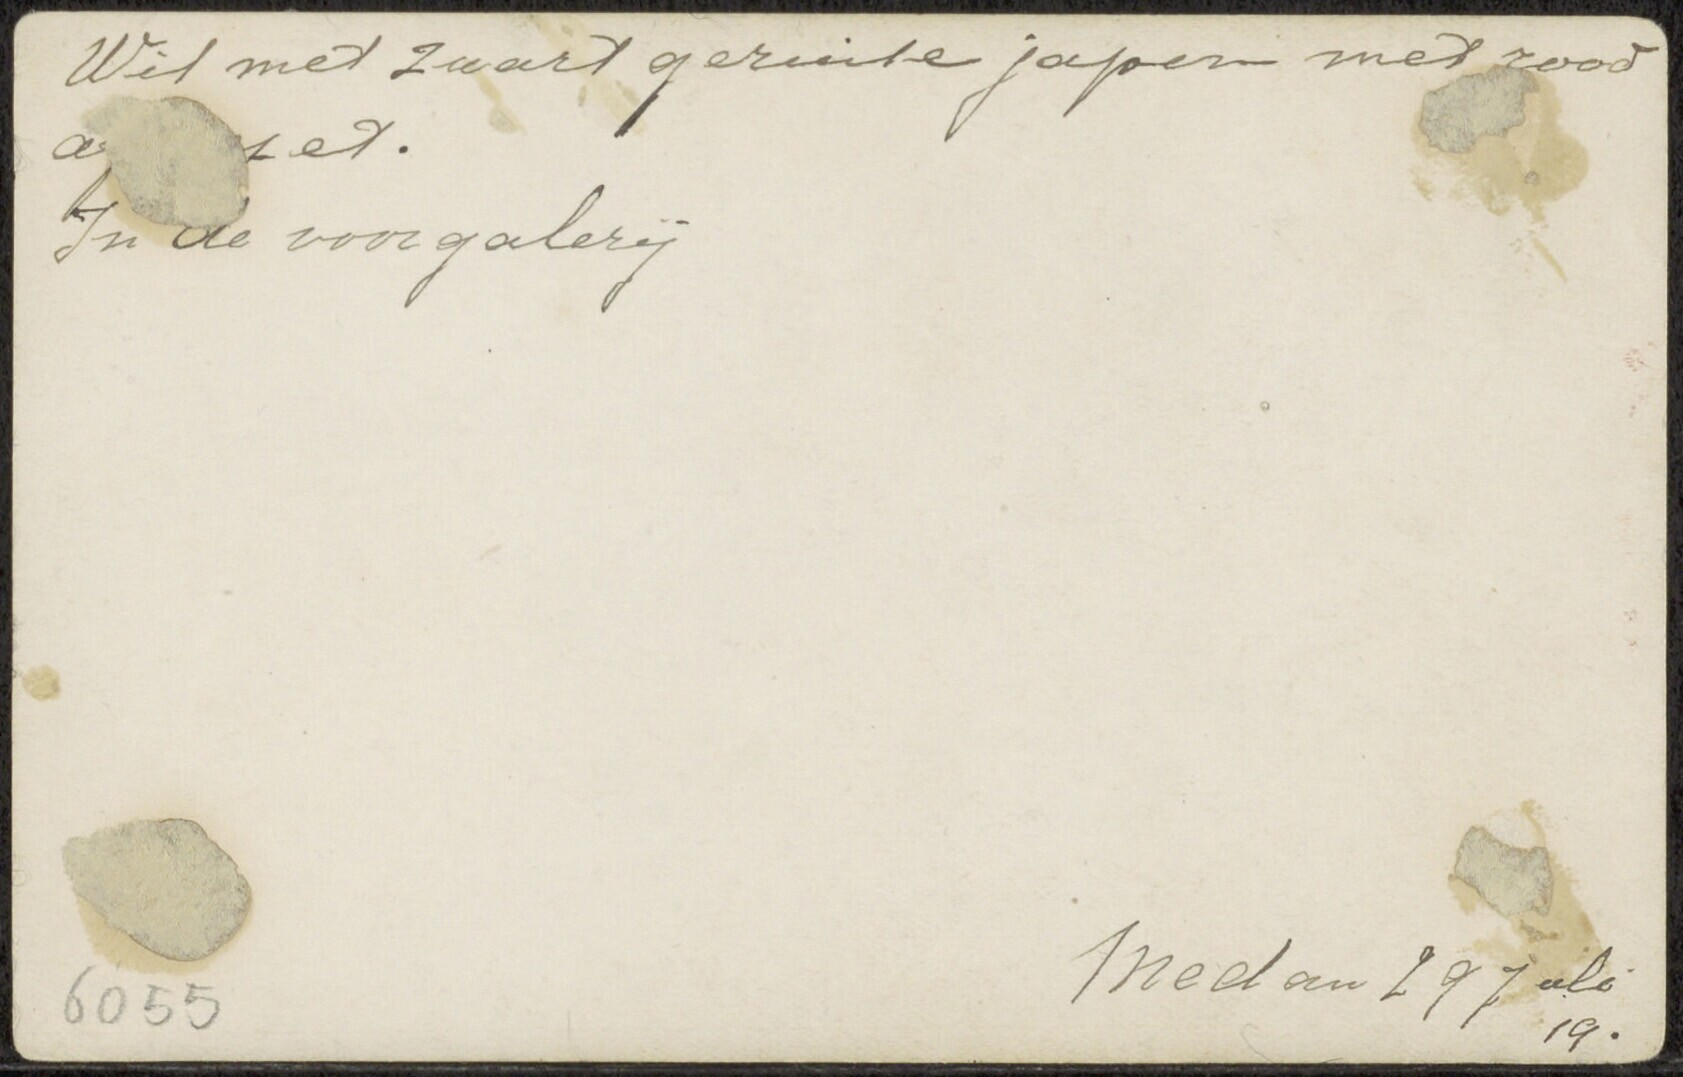 Wit met zwart geruite japon met rood
In de voorgalerij
Medan 29 juli
19.
6055